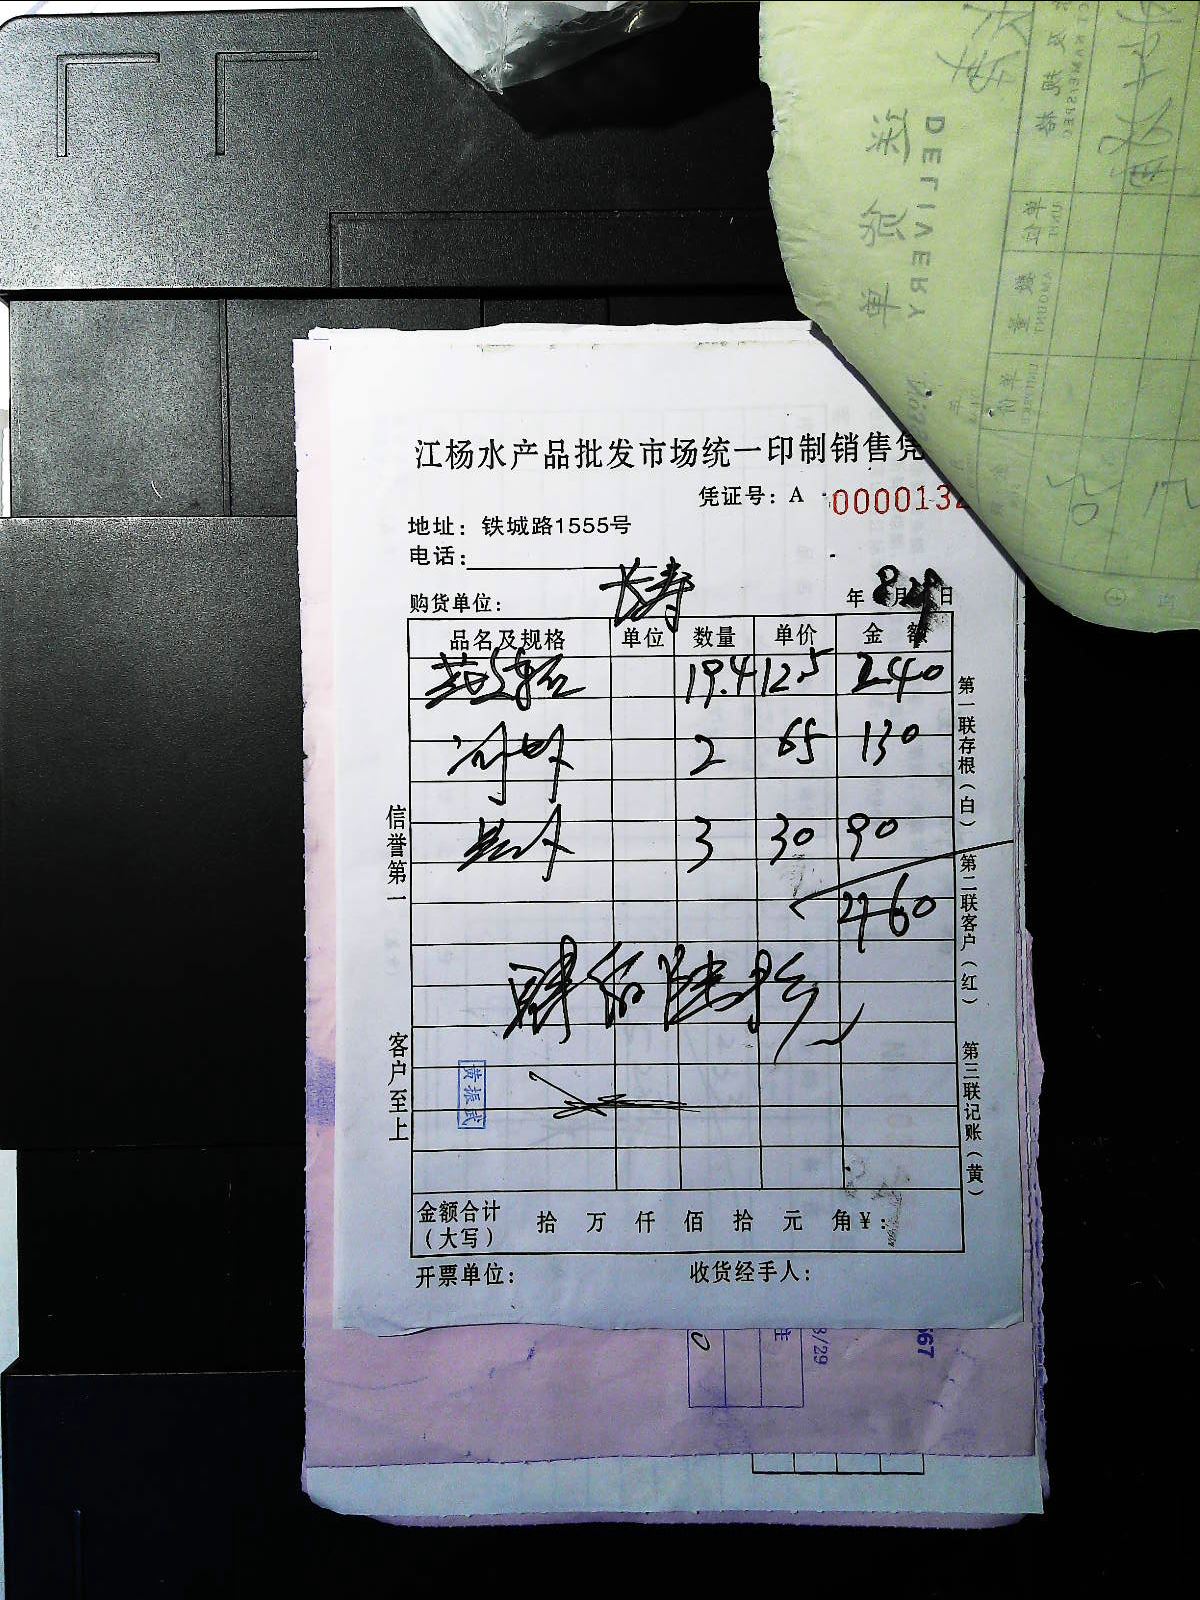 江杨水产品批发市场统一印制销售凭
凭证号：A 0000132
地址：铁城路1555号
电话：
购货单位：长寿 年 8月29日
品名及规格 单位 数量 单价 金额
19.4 12.5 240
2 65 130
3 30 90
460
肆佰陆拾
黄振武
金额合计（大写） 拾 万 仟 佰 拾 元 角 ¥：
开票单位： 收货经手人：
信誉第一
客户至上
第一联存根（白）
第二联客户（红）
第三联记账（黄）
送货单
DELIVERY
8/29
567